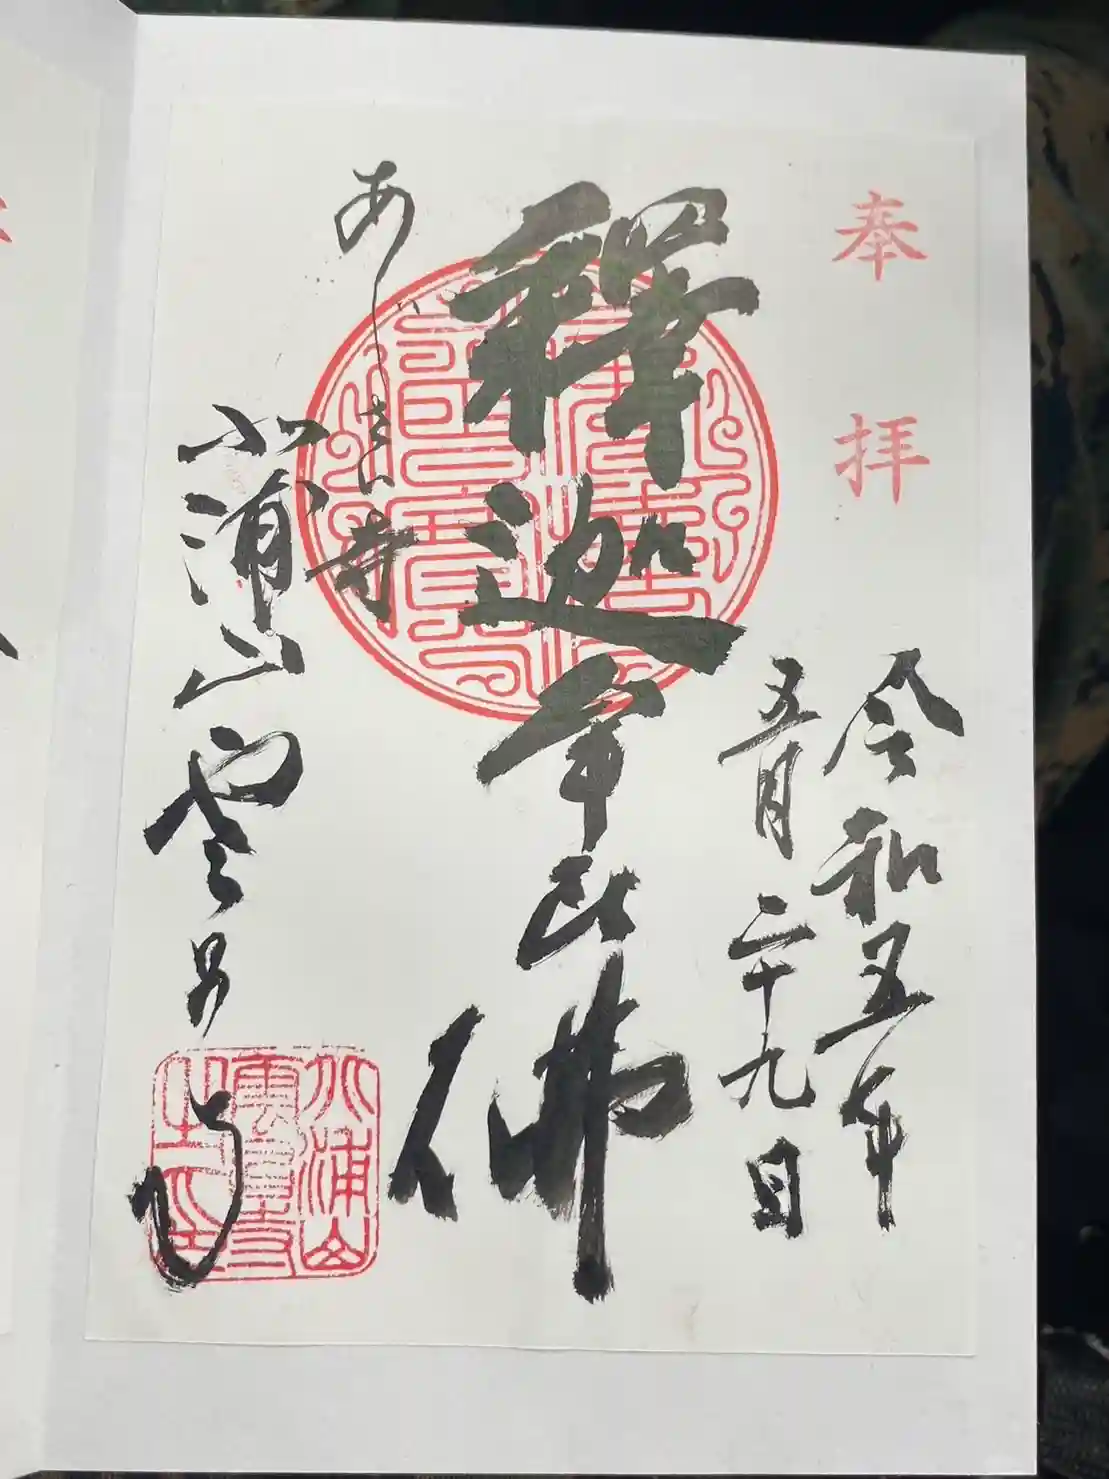 奉拝
令和五年
五月二十九日
釋迦牟尼佛
あじさい寺
北浦山雲昌寺
北浦山
雲昌寺
之印